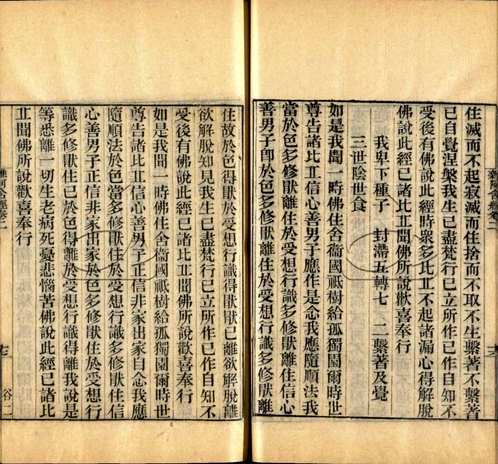 住滅而不起寂滅而住捨而不取不生繫著不繫著
已自覺涅槃我生已盡梵行已立所作已作自知不
受後有佛說此經時眾多比丘不起諸漏心得解脫
佛說此經已諸比丘聞佛所說歡喜奉行
我卑下種子 封滯五轉七 二繫著及覺
三世陰世食
如是我聞一時佛住舍衞國祇樹給孤獨園爾時世
尊告諸比丘信心善男子應作是念我應隨順法我
當於色多修厭離住於受想行識多修厭離住信心
善男子即於色多修厭離住於受想行識多修厭離
住故於色得厭於受想行識得厭厭已離欲解脫
欲解脫知見我生已盡梵行已立所作已作自知不
受後有佛說此經已諸比丘聞佛所說歡喜奉行
如是我聞一時佛住舍衞國祇樹給孤獨園爾時世
尊告諸比丘信心善男子正信非家出家自念我應
隨順法於色當多修厭住於受想行識多修厭住信
心善男子正信非家出家於色多修厭住於受想行
識多修厭住已於色得離於受想行識得離我說是
等悉離一切生老病死憂悲惱苦佛說此經已諸比
丘聞佛所說歡喜奉行
谷二